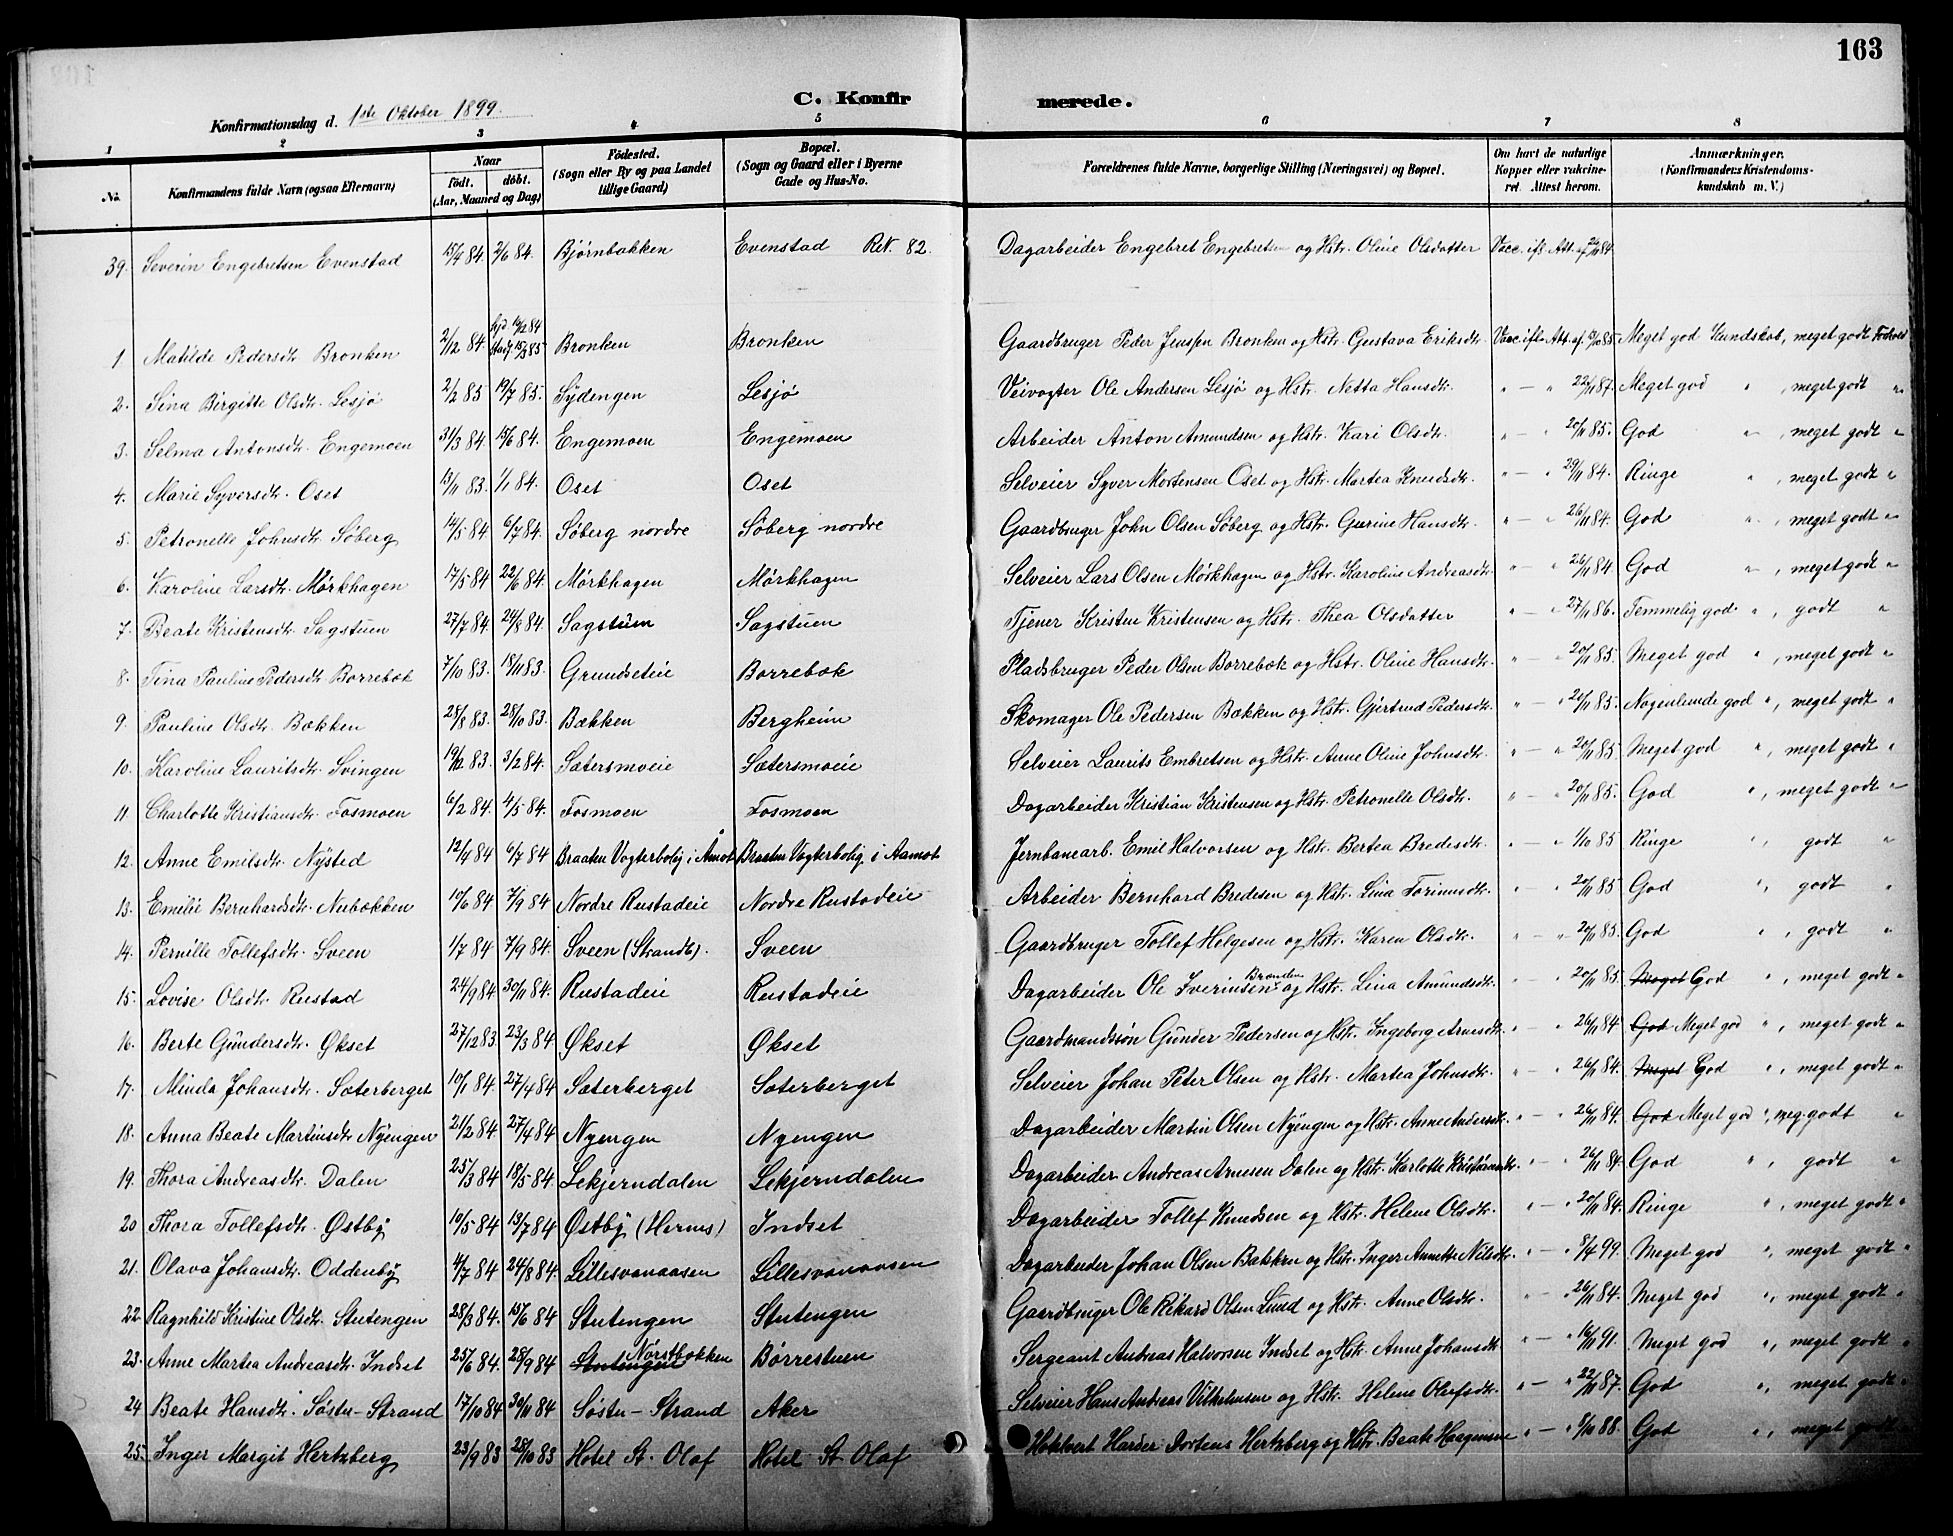 163
C. Konfirmerede.
Konfirmationsdag d. 1ste Oktober 1899.
1 2 3 4 5 6 7 8
No. Konfirmandens fulde Navn (ogsaa Efternavn) Naar födt. döbt. (Aar, Maaned og Dag) Födested. (Sogn eller By og paa Landet tillige Gaard) Bopæl. (Sogn og Gaard eller i Byerne Gade og Hus-No. Forældrenes fulde Navne, borgerlige Stilling (Næringsvei) og Bopæl. Om havt de naturlige Kopper eller vakcineret. Attest herom. Anmærkninger. (Konfirmandens Kristendomskundskab m. V.)
39. Severin Engebretsen Evenstad 15/4 84 2/6 84. Bjørnbakken Evenstad Ret. 82. Dagarbeider Engebret Engebretsen og Hstr. Oline Olsdatter Vacc. ifl. Att. af 26/11 84.
1 Matilde Pedersdtr. Bronken 2/12 84 15/3 85 Bronken Bronken Gaardbruger Peder Jenssen Bronken og Hstr. Gustava Eriksdtr. Vacc. ifl. Att. af 85. Meget god Kundskab, meget godt Forhold
2. Sina Birgitte Olsdtr. Lesjø 2/2 85 19/7 85. Sydengen Lesjø Veivogter Ole Andersen Lesjø og Hstr. Netta Hansdtr. " — " 22/11 87. Meget god " , meget godt "
3. Selma Antonsdtr. Engemoen 31/3 84. 15/6 84. Engemoen Engemoen Arbeider Anton Amundsen og Hstr. Kari Olsdtr. " — " 20/11 85. God " , meget godt "
4. Marie Syversdtr. Oset 13/11 83. 1/1 84. Oset Oset Selveier Syver Mortensen Oset og Hstr. Martea Knudsdtr. " — " 29/11 84. Ringe " , meget godt "
5. Petronelle Johnsdtr. Söberg 14/5 84 6/7 84. Söberg nordre Söberg nordre Gaardbruger John Olsen Søberg og Hstr. Gurine Hansdtr. " — " 26/11 84. God " , meget godt "
6. Karoline Larsdtr. Mørkhagen 17/5 84 22/6 84. Mørkhagen Mørkhagen Selveier Lars Olsen Mørkhagen og Hstr. Karoline Andreasdtr. " — " 26/11 84. God " , meget godt "
7. Beate Kristensdtr. Sagstuen 27/7 84. 24/8 84. Sagstuen Sagstuen Tjener Kristen Kristensen og Hstr. Thea Olsdatter " — " 27/11 86. Temmelig god " , godt "
8. Tina Pauline Pedersdtr. Borrebæk 7/10 83. 18/11 83. Grundseteie Borrebæk Pladsbruger Peder Olsen Borrebæk og Hstr. Oline Hansdtr. " — " 20/11 85. Meget god " , meget godt "
9. Pauline Olsdtr. Bækken 28/8 83. 28/10 83. Bækken Bergheim Skomager Ole Pedersen Bækken og Hstr. Gjertrud Pedersdtr. " — " 20/11 85. Nogenlunde god " , meget godt "
10. Karoline Lauritsdtr. Svingen 19/12 83. 3/2 84. Sætersmoeie Sætersmoeie Selveier Laurits Embretsen og Hstr. Anne Oline Johnsdtr. " — " 20/11 85. Meget god " , meget godt "
11. Charlotte Kristiansdtr. Fosmoen 6/2 84. 4/5 84. Fosmoen Fosmoen Dagarbeider Kristian Kristensen og Hstr. Petronelle Olsdtr. " — " 20/11 85. God " , meget godt "
12. Anne Emilsdtr. Nysted 12/4 84 6/7 84 Braaten Vogterbolig i Åmot Braaten Vogterbolig. i Aamot Jernbanearb. Emil Halvorsen og Hstr. Bertea Bredesdtr. " — " 1/10 85 Ringe " , godt "
13. Emilie Bernhardsdtr. Nerbækken 10/6 84 7/9 84 Nordre Rustadeie Nordre Rustadeie Arbeider Bernhard Bredesen og Hstr. Lina Torinusdtr. " — " 20/11 85 God " , godt "
14. Pernille Tollefsdtr. Sveen 1/7 84 7/9 84. Sveen (Strandb). Sveen Gaardbruger Tollef Helgesen og Hstr. Karen Olsdtr. " — " 20/11 85. God " , godt "
15. Lovise Olsdtr. Rustad 24/9 84 30/11 84. Rustadeie Rustadeie Dagarbeider Ole Iverinsen Branden og Hstr. Lina Amundsdtr. " — " 20/11 85 Meget God " , meget godt "
16. Berte Gundersdtr. Økset 27/12 83 23/3 84 Økset Økset Gaardmandssøn Gunder Pedersen og Hstr. Ingeborg Arnesdtr. " — " 26/11 84 God Meget god " , meget godt "
17. Minda Johansdtr. Sæterberget 10/1 84. 27/4 84 Sæterberget Sæterberget Selveier Johan Peter Olsen og Hstr. Martea Johnsdtr. " — " 26/11 84. Meget God " , meget godt "
18. Anna Beate Martinsdtr. Nyengen 21/2 84 27/4 84 Nyengen Nyengen Dagarbeider Martin Olsen Nyengen og Hstr. Anne Andersdtr. " — " 26/11 84. God Meget god " , meg. godt "
19. Thora Andreasdtr. Dalen 25/3 84 18/5 84 Lekjerndalen Lekjerndalen Dagarbeider Andreas Arnesen Dalen og Hstr. Karlotte Kristiansdtr. " — " 26/11 84. God " , godt "
20 Thora Tollefsdtr. Østby 19/5 84 13/7 84 Østby (Hernes) Indset Dagarbeider Tollef Knudsen og Hstr. Helene Olsdtr. " — " 20/11 84. Ringe " , meget godt "
21. Olava Johansdtr. Oddenby 4/7 84 24/8 84 Lillesvanaasen Lillesvanaasen Dagarbeider Johan Olsen Bakken og Hstr. Inger Annette Nilsdtr. " — " 8/4 99. Meget god " , meget godt "
22. Ragnhild Kristine Olsdtr. Stutengen 28/3 84. 15/6 84 Stutengen Stutengen Gaardbruger Ole Rikard Olsen Lund og Hstr. Anne Olsdtr. " — " 26/11 84. Meget god " , meget godt "
23. Anne Martea Andreasdtr. Indset 25/6 84. 28/9 84 Stutengen Nørstbækken Børrestuen Sergeant Andreas Halvorsen Indset og Hstr. Anne Johansdtr. " — " 16/11 91. Meget god " , meget godt "
24 Beate Hansdtr. Søstu-Strand 17/10 84 30/11 84 Søstu-Strand Aker Selveier Hans Andreas Vilhelmsen og Hstr. Helene Olufsdtr. " — " 22/11 87. God " , meget godt "
25. Inger Margit Hertzberg 23/9 83 28/10 83 Hotel St. Olaf Hotel St. Olaf Harder Hertzberg og Hstr. Beate Haagensen " — " 8/10 88. God " , meget godt